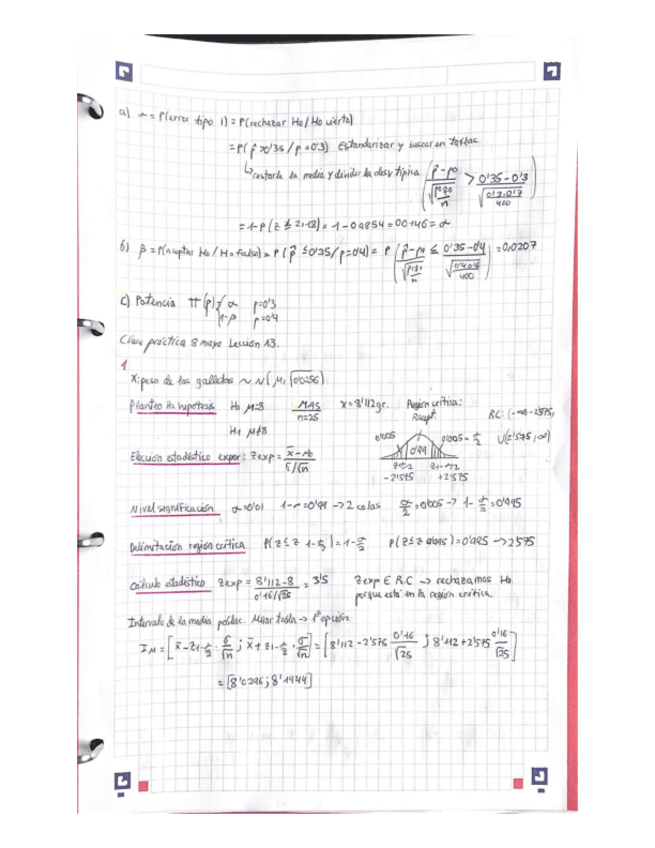 a) α = P(error tipo 1) = P(rechazar Ho/Ho cierta)
= P(p̂ > 0'35 / p = 0'3) Estandarizar y buscar en tablas.
↳ restarle la media y dividir la desv típica (p̂ - p0 / √(p0q0/n) > 0'35 - 0'3 / √(0'3·0'7/400))
= 1 - P(Z ≤ 2,18) = 1 - 0,9854 = 0,0146 = α
b) β = P(aceptar Ho/Ho falsa) = P(p̂ ≤ 0'35/p = 0'4) = P(p̂ - p1 / √(p1q1/n) ≤ 0'35 - 0'4 / √(0'4·0'6/400)) = 0,0207
c) Potencia Π(p) { α p=0'3
1-β p=0'4
Clase práctica 8 mayo Lección 13.
1
X: peso de las galletas ~ N(μ, √0'0256)
Planteo la hipótesis Ho μ=8 MAS n=25 x̄ = 8'112 gr. Región crítica: RC: (-∞, -2'575)
H1 μ≠8 U(2'575, ∞)
0'005 0'99 0'005 = α/2
Elección estadístico exper: Zexp = x̄ - μo / σ/√n
-2'575 +2'575
Nivel significación α=0'01 1-α=0'99 → 2 colas α/2 = 0'005 → 1 - α/2 = 0'995
Delimitación región crítica P(Z ≤ Z 1-α/2) = 1 - α/2 P(Z ≤ Z 0'995) = 0'995 → 2'575
Cálculo estadístico Zexp = 8'112 - 8 / 0'16/√25 = 3'5 Zexp ∈ R.C → rechazamos Ho
porque está en la región crítica.
Intervalo de la media poblac. Mirar tabla → 1ª opción.
Iμ = [x̄ - Z1-α/2 · σ/√n ; x̄ + Z1-α/2 · σ/√n] = [8'112 - 2'575 0'16/√25 ; 8'112 + 2'575 0'16/√25]
= [8'0296 ; 8'1944]